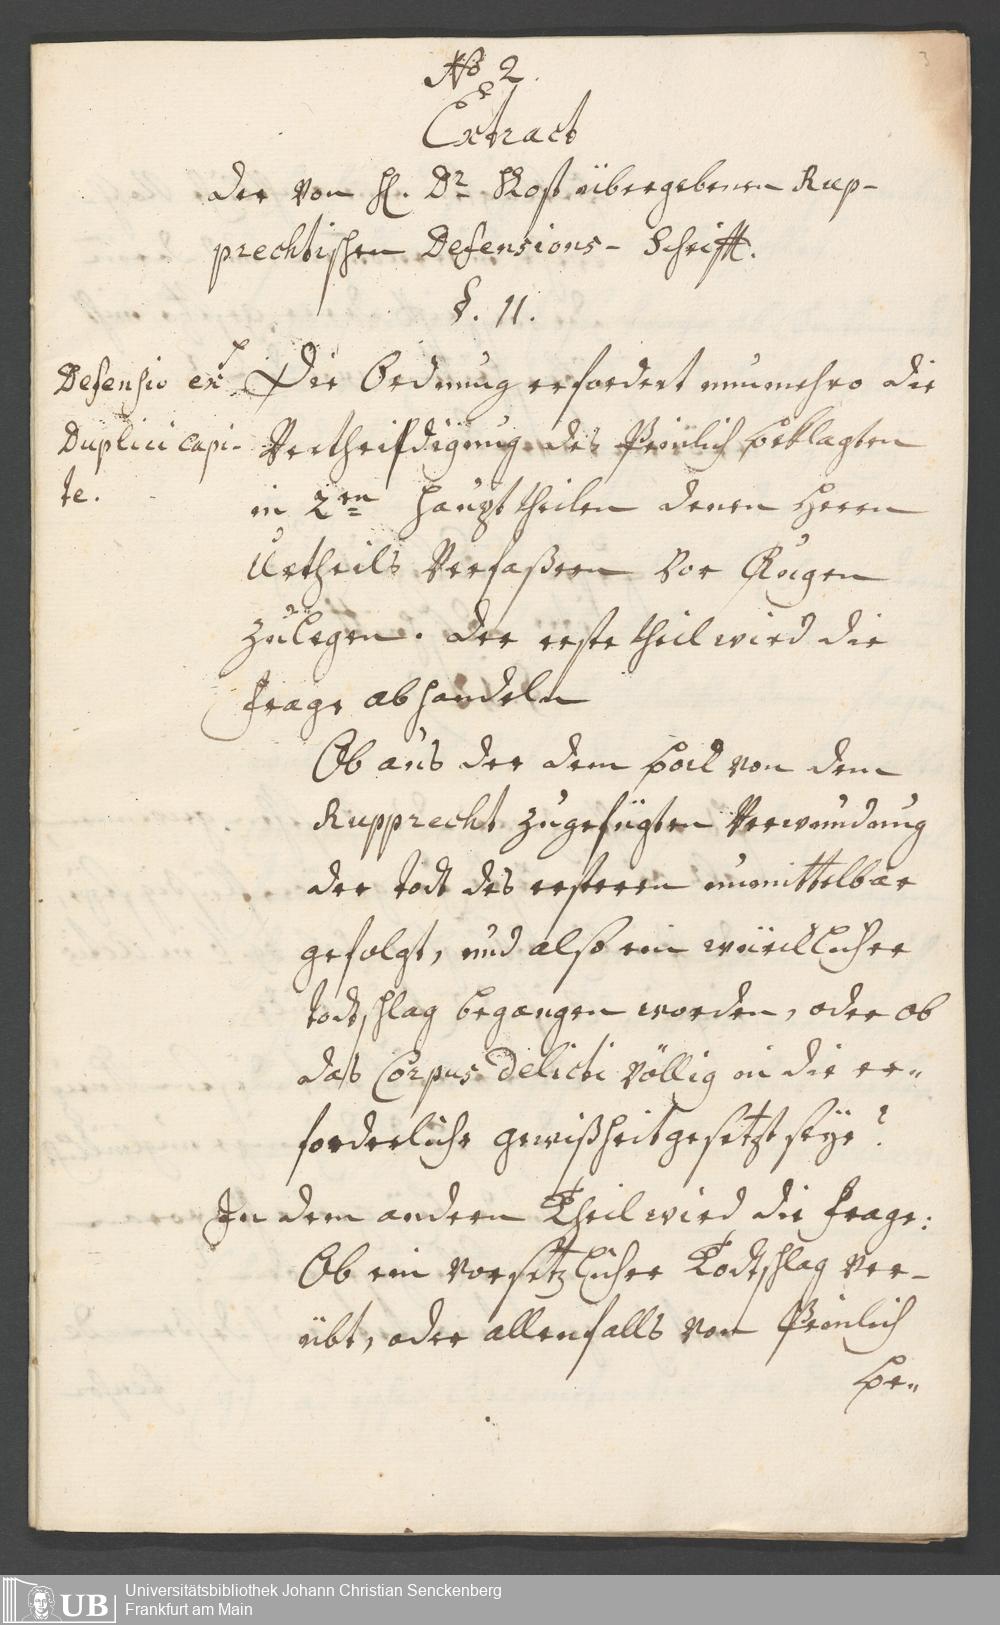 3
No 2.
Extract
der von H. Dr Kost übergebenen Rup-
prechtischen Defensions-Schrifft.
§. 11.
Defensio ex
Duplici capi-
te.
Die Ordnung erfordert nunmehro die
Vertheidigung des Peinlich beklagten
in 2en haupttheilen denen Herrn
Urtheils Verfaßern vor Augen
zu legen. Der erste theil wird die
Frage abhandeln
Ob aus der dem von dem
Rupprecht zugefügten Verwundung
der todt des ersteren unmittelbar
gefolgt, und also ein würcklicher
todtschlag begangen worden, oder ob
das Corpus Delicti völlig in die er„
forderliche gewißheit gesetzt seye?
In dem andern Theil wird die Frage:
Ob ein vorsetzlicher Todtschlag ver-
übt, oder allenfalls vom Peinlich
be„
UB
Universitätsbibliothek Johann Christian Senckenberg
Frankfurt am Main